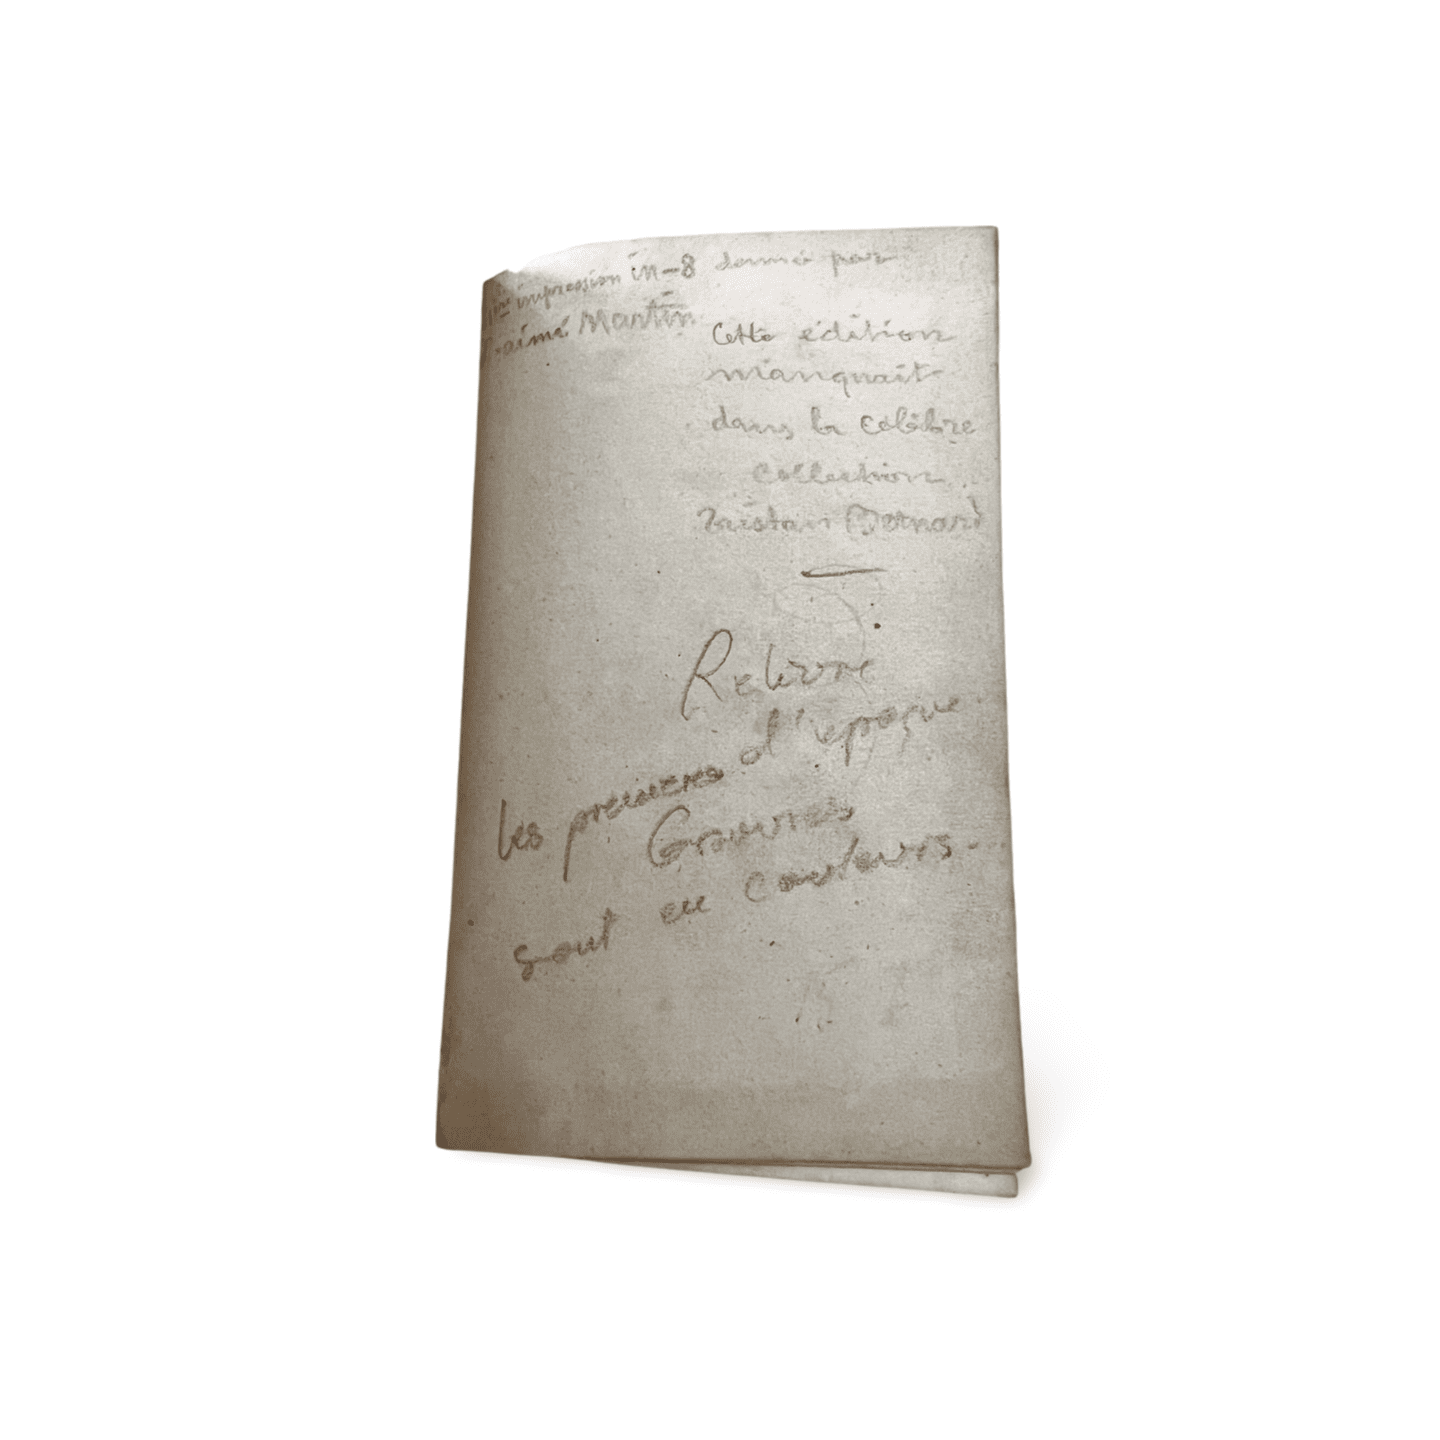 1re impression in-8 donné par
L. aimé Martin
Cette édition
manquait
dans la célèbre
collection
Tristan Bernard
Reliure
d'époque.
les premières
Gravures
sont en couleurs.